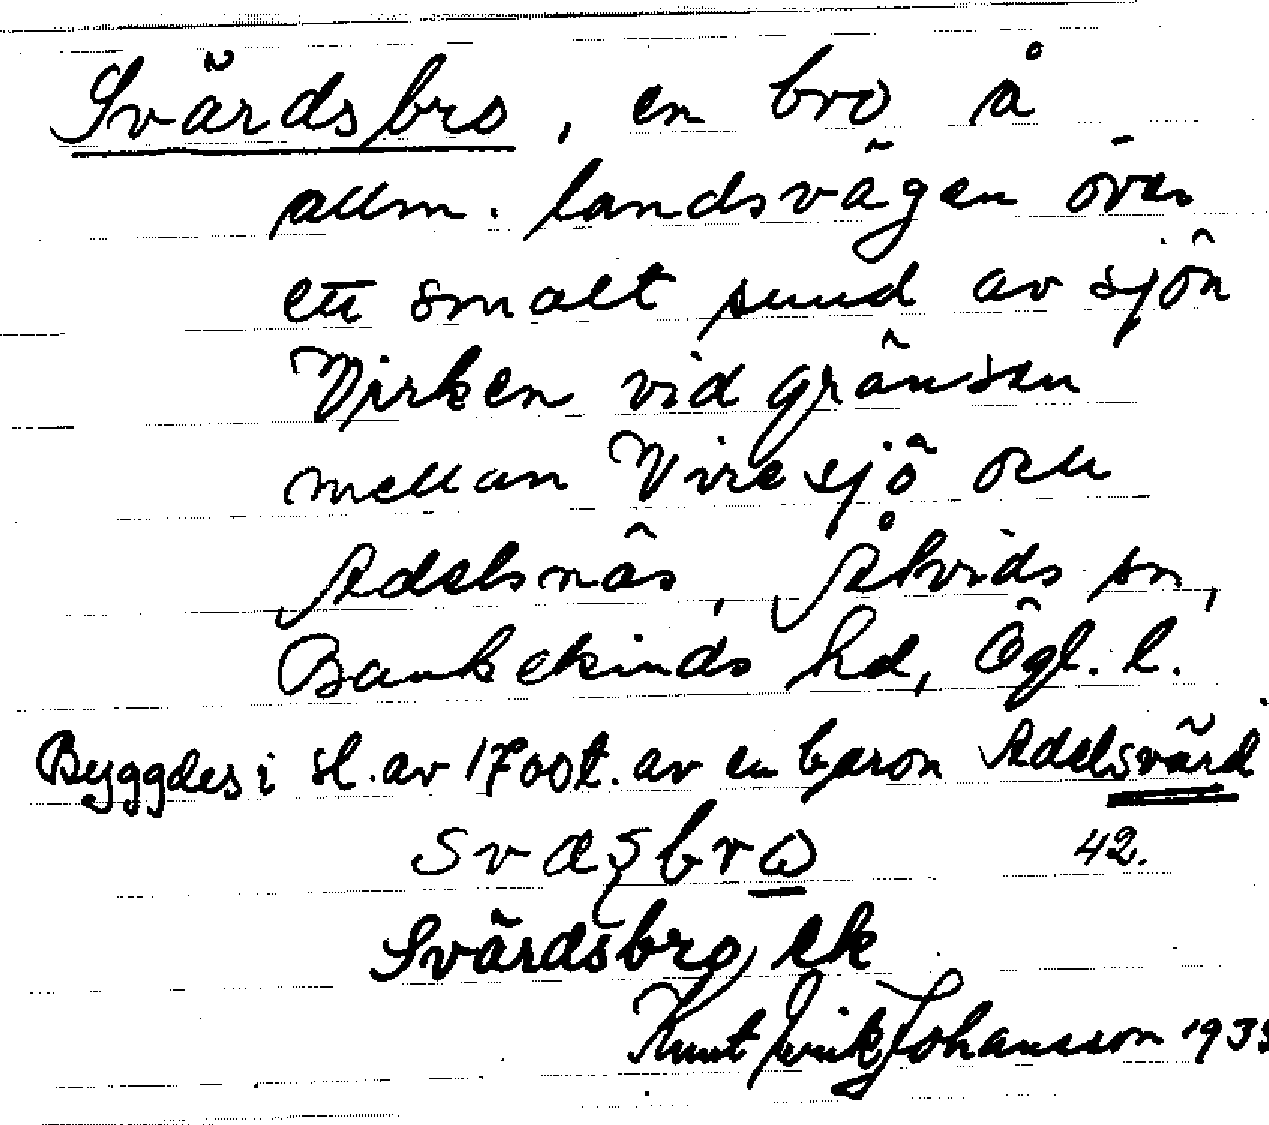 Svärdsbro, en bro å
allm. landsvägen över
ett smalt sund av sjön
Virken vid gränsen
mellan Viresjö och
Adelsnäs, Åtvids sn,
Bankekinds hd, Ögl. l.
Byggdes i sl. av 1700 t. av en baron Adelsvärd
42.
Svärdsbro, ek
Knut Erik Johansson